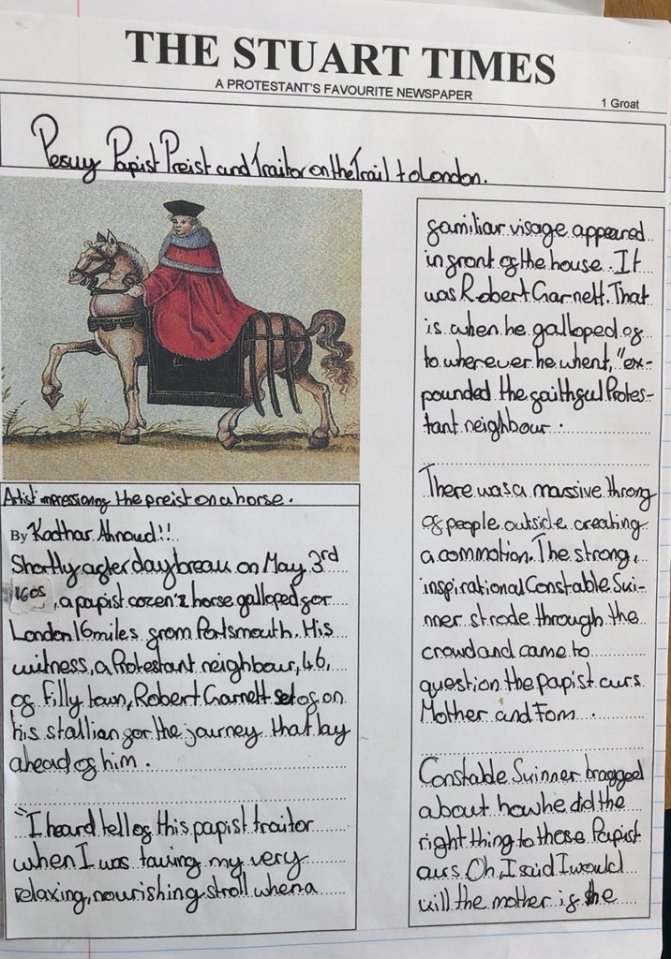 THE STUART TIMES
A PROTESTANT'S FAVOURITE NEWSPAPER
1 Groat
Pesky Papist Preist and Traitor on the Trail to London.
Artist impressioning the preist on a horse.
By Kadhar Ahnaud!!
Shortly after daybreak on May 3rd
1605, a papist cozen's horse galloped for
London 16 miles from Portsmouth. His
witness, a Protestant neighbour, 46,
of Filly town, Robert Garnett set of on
his stallian for the journey that lay
ahead of him.
"I heard tell of this papist traitor
when I was taking my very
relaxing, nourishing stroll when a
familiar visage appeared
in front of the house. It
was Robert Garnett. That
is when he galloped of
to wherever he whent, "ex-
pounded the faithful Protes-
tant neighbour.
There was a massive throng
of people outside creating
a commotion. The strong,
inspirational Constable Ski-
nner strode through the
crowd and came to
question the papist curs
Mother and Tom.
Constable Skinner bragged
about how he did the
right thing to those Papist
curs. Oh, I said I would
kill the mother if she